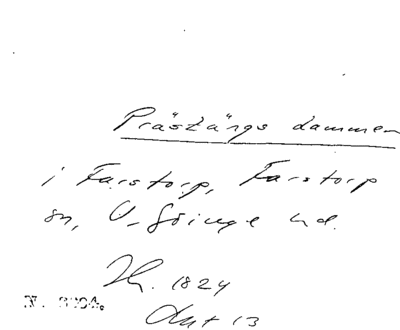 Prästängs dammen
i Farstorp, Farstorp
sn, V. Göinge hd.
1824
13
N.